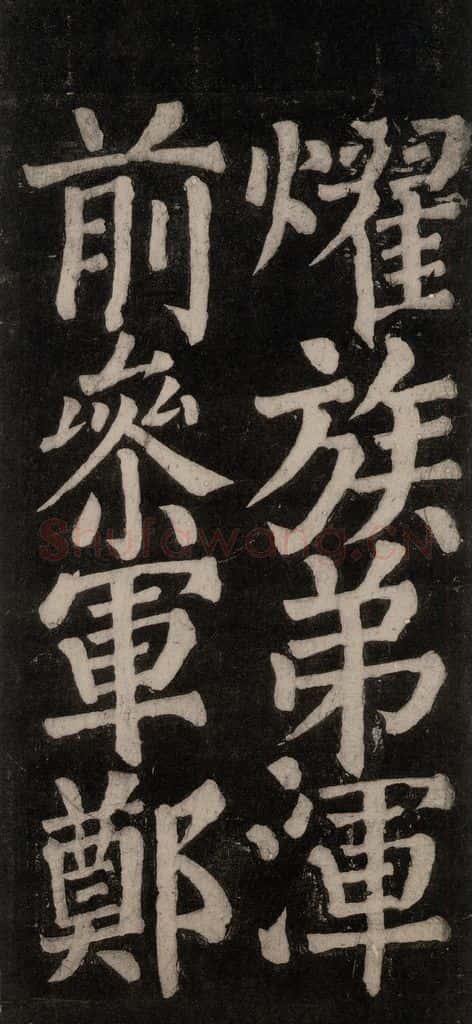 燿族弟渾
前參軍鄭
Shufawang.CN